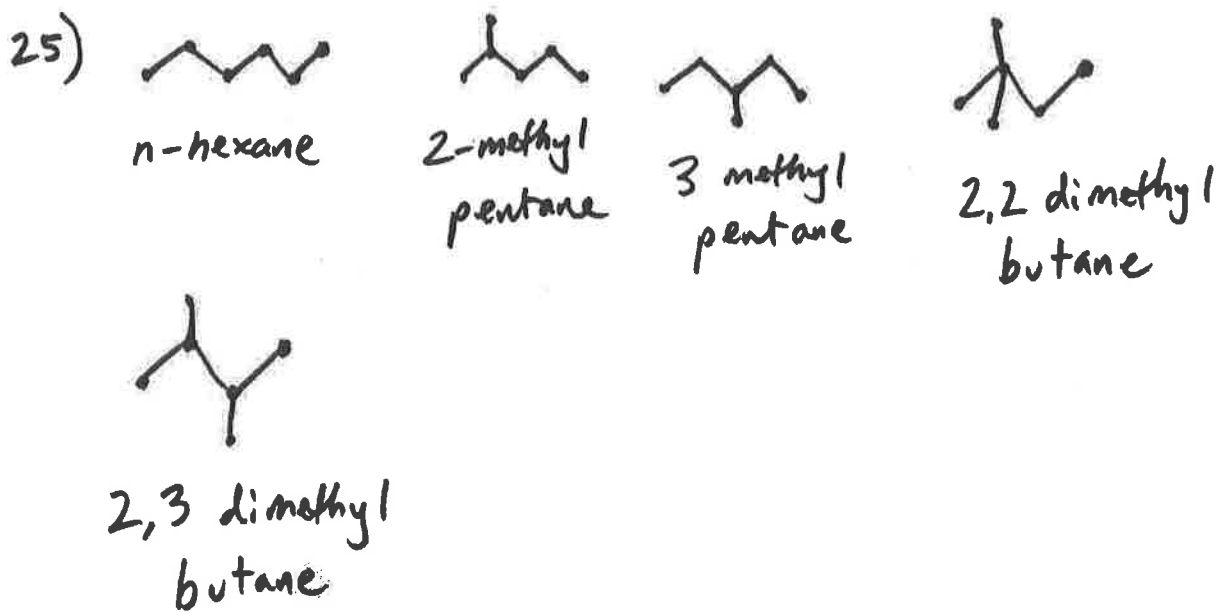 25)
n-hexane
2-methyl
pentane
3 methyl
pentane
2,2 dimethyl
butane
2,3 dimethyl
butane